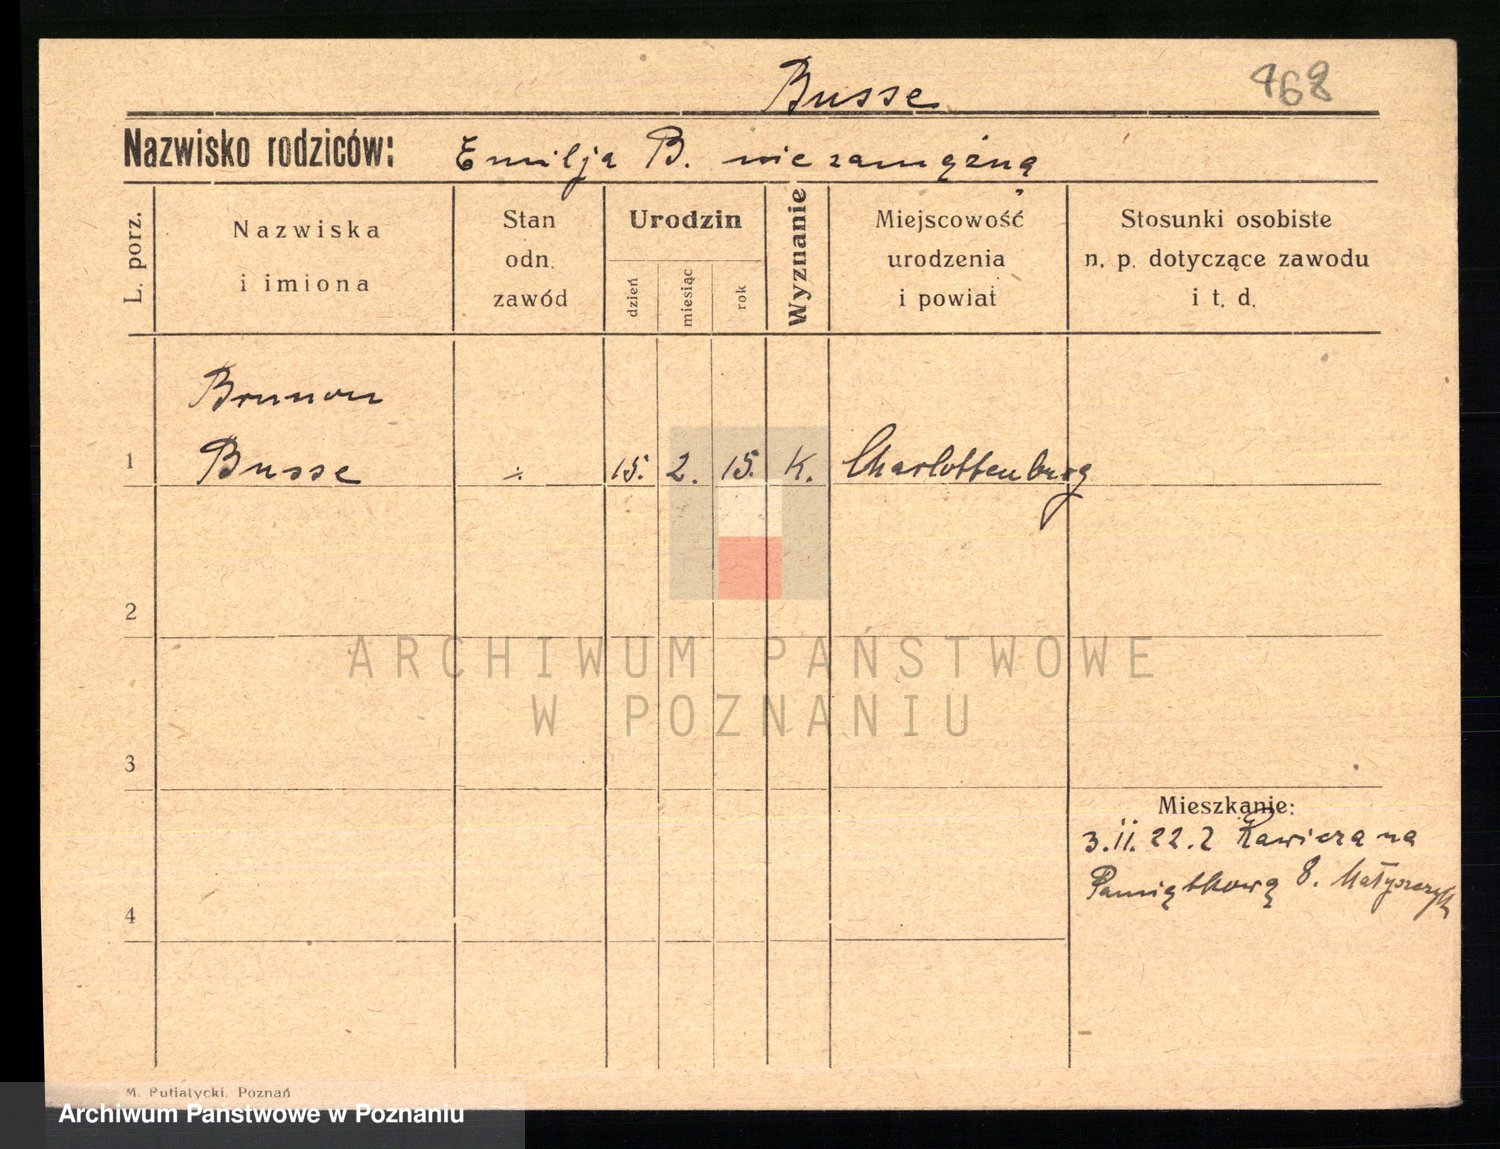 Busse
468
Nazwisko rodziców: Emilja B. niezamężną
L. porz.
Nazwiska
i imiona
Stan
odn.
zawód
Urodzin
dzień
miesiąc
rok
Wyznanie
Miejscowość
urodzenia
i powiat
Stosunki osobiste
n. p. dotyczące zawodu
i t. d.
Brunon
1 Busse 15. 2. 15. K. Charlottenburg
2
3
4
Mieszkanie:
3.II.22. z Rawicza na
Pamiątkową 8.
ARCHIWUM PAŃSTWOWE
W POZNANIU
M. Putiatycki, Poznań
Archiwum Państwowe w Poznaniu